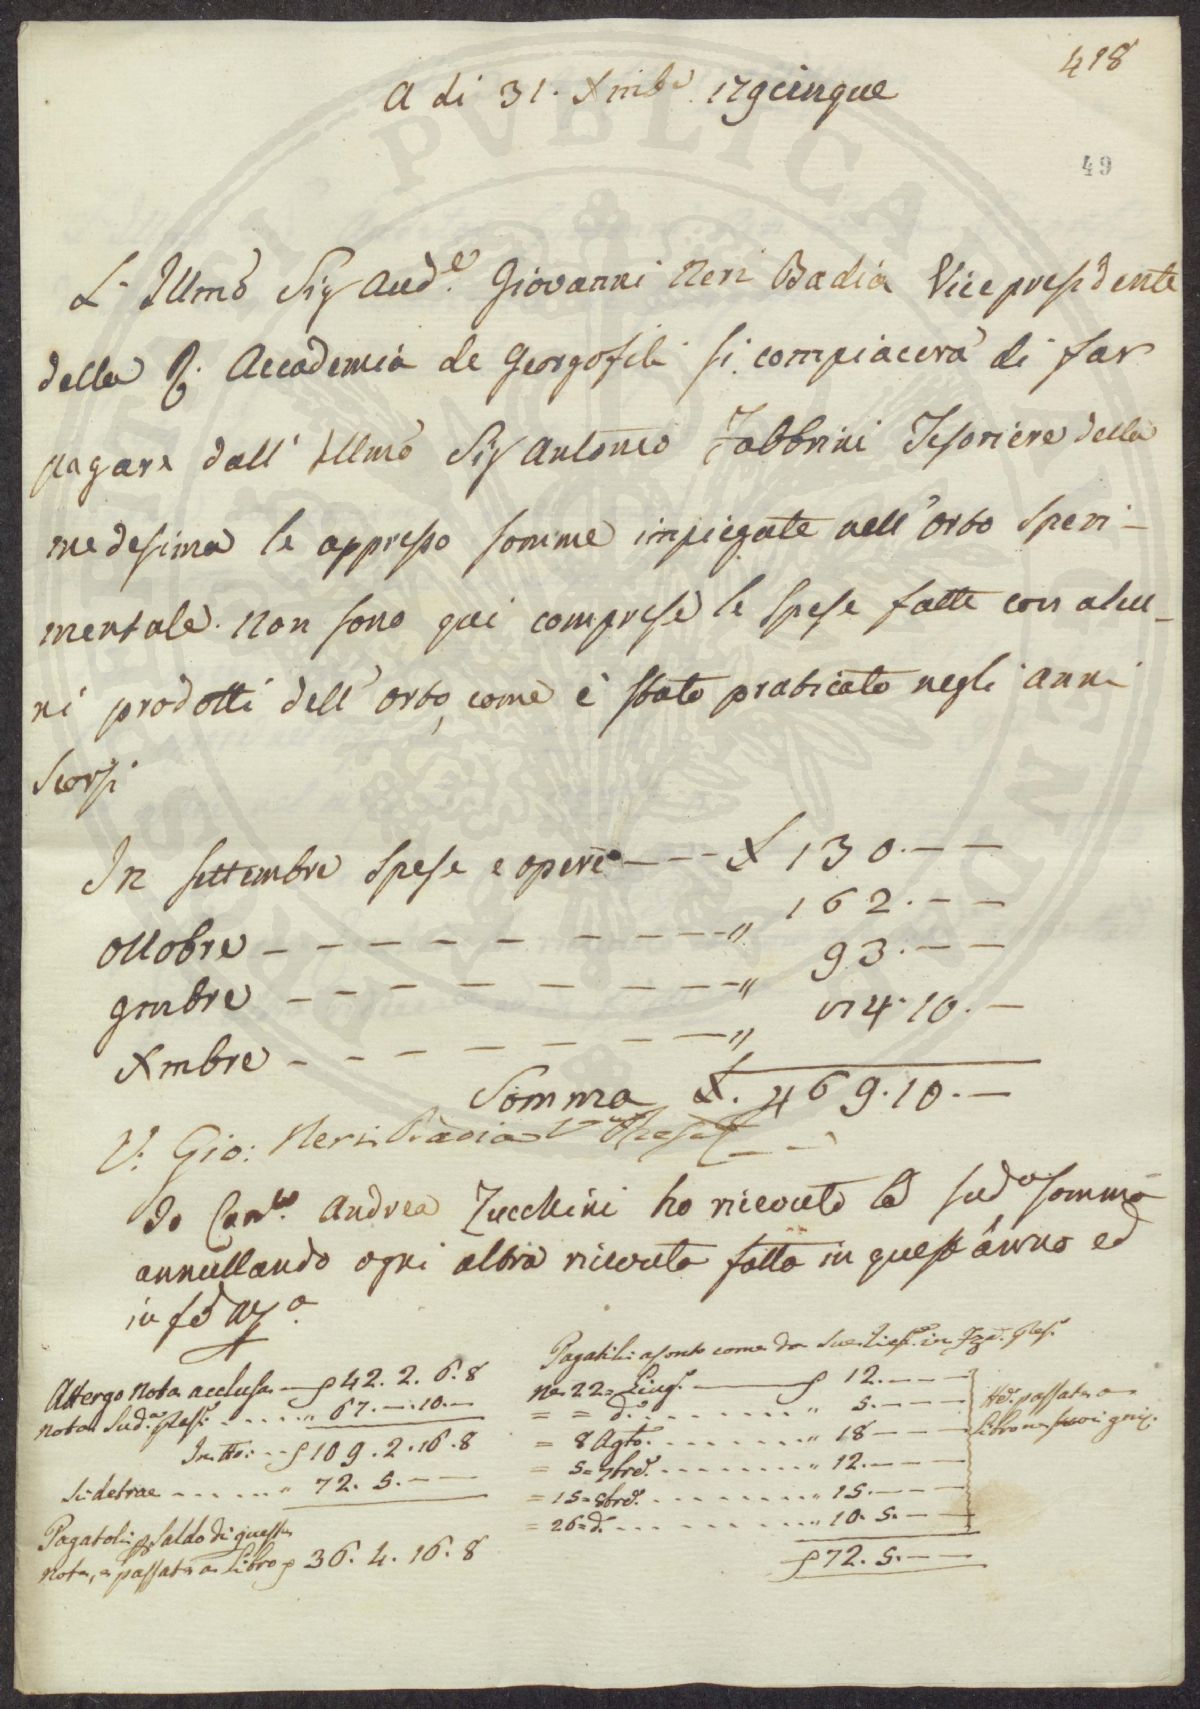 418
A di 31. Xmbe 179cinque
49
L' Illmo Sig Aud.e Giovanni Neri Badia Vicepresidente
della R. Accademia de Georgofili si compiacerà di far
pagare dall' Illmo Sig Antonio Fabbrini Tesoriere della
medesima le appresso somme impiegate nell'Orto Speri-
mentale. Non sono qui comprese le spese fatte con alcu-
ni prodotti dell'Orto, come è stato praticato negli anni
scorsi
In settembre spese e opere --- £ 130.--
Ottobre --------- " 162.--
9mbre --------- " 93.--
Xmbre --------- " 4.10.-
Somma £. 469.10.-
V. Gio: Neri Badia
Io Can.co Andrea Zucchini ho ricevuto la sud.a somma
annullando ogni altra ricevuta fatta in quest'anno ed
in fd
Attergo Nota acclusa — 42.2.6.8
Nota Sud.a " 67.-.10.-
In tto: 109.2.16.8
Si detrae ..... " 72.5.--
Pagatoli p Saldo di questa
Nota, e passata a Libro 36.4.16.8
Pagatili: a conto come da Sue
22 Giug.o — 12.---
= = d.o ....... " 5.---
= 8 Agto. ....... " 18---
= 5 = 7bre. ....... " 12.---
= 15 = 8bre. ....... " 15.---
= 26 = d.o ....... " 10.5.--
passata a
Libro
72.5.--